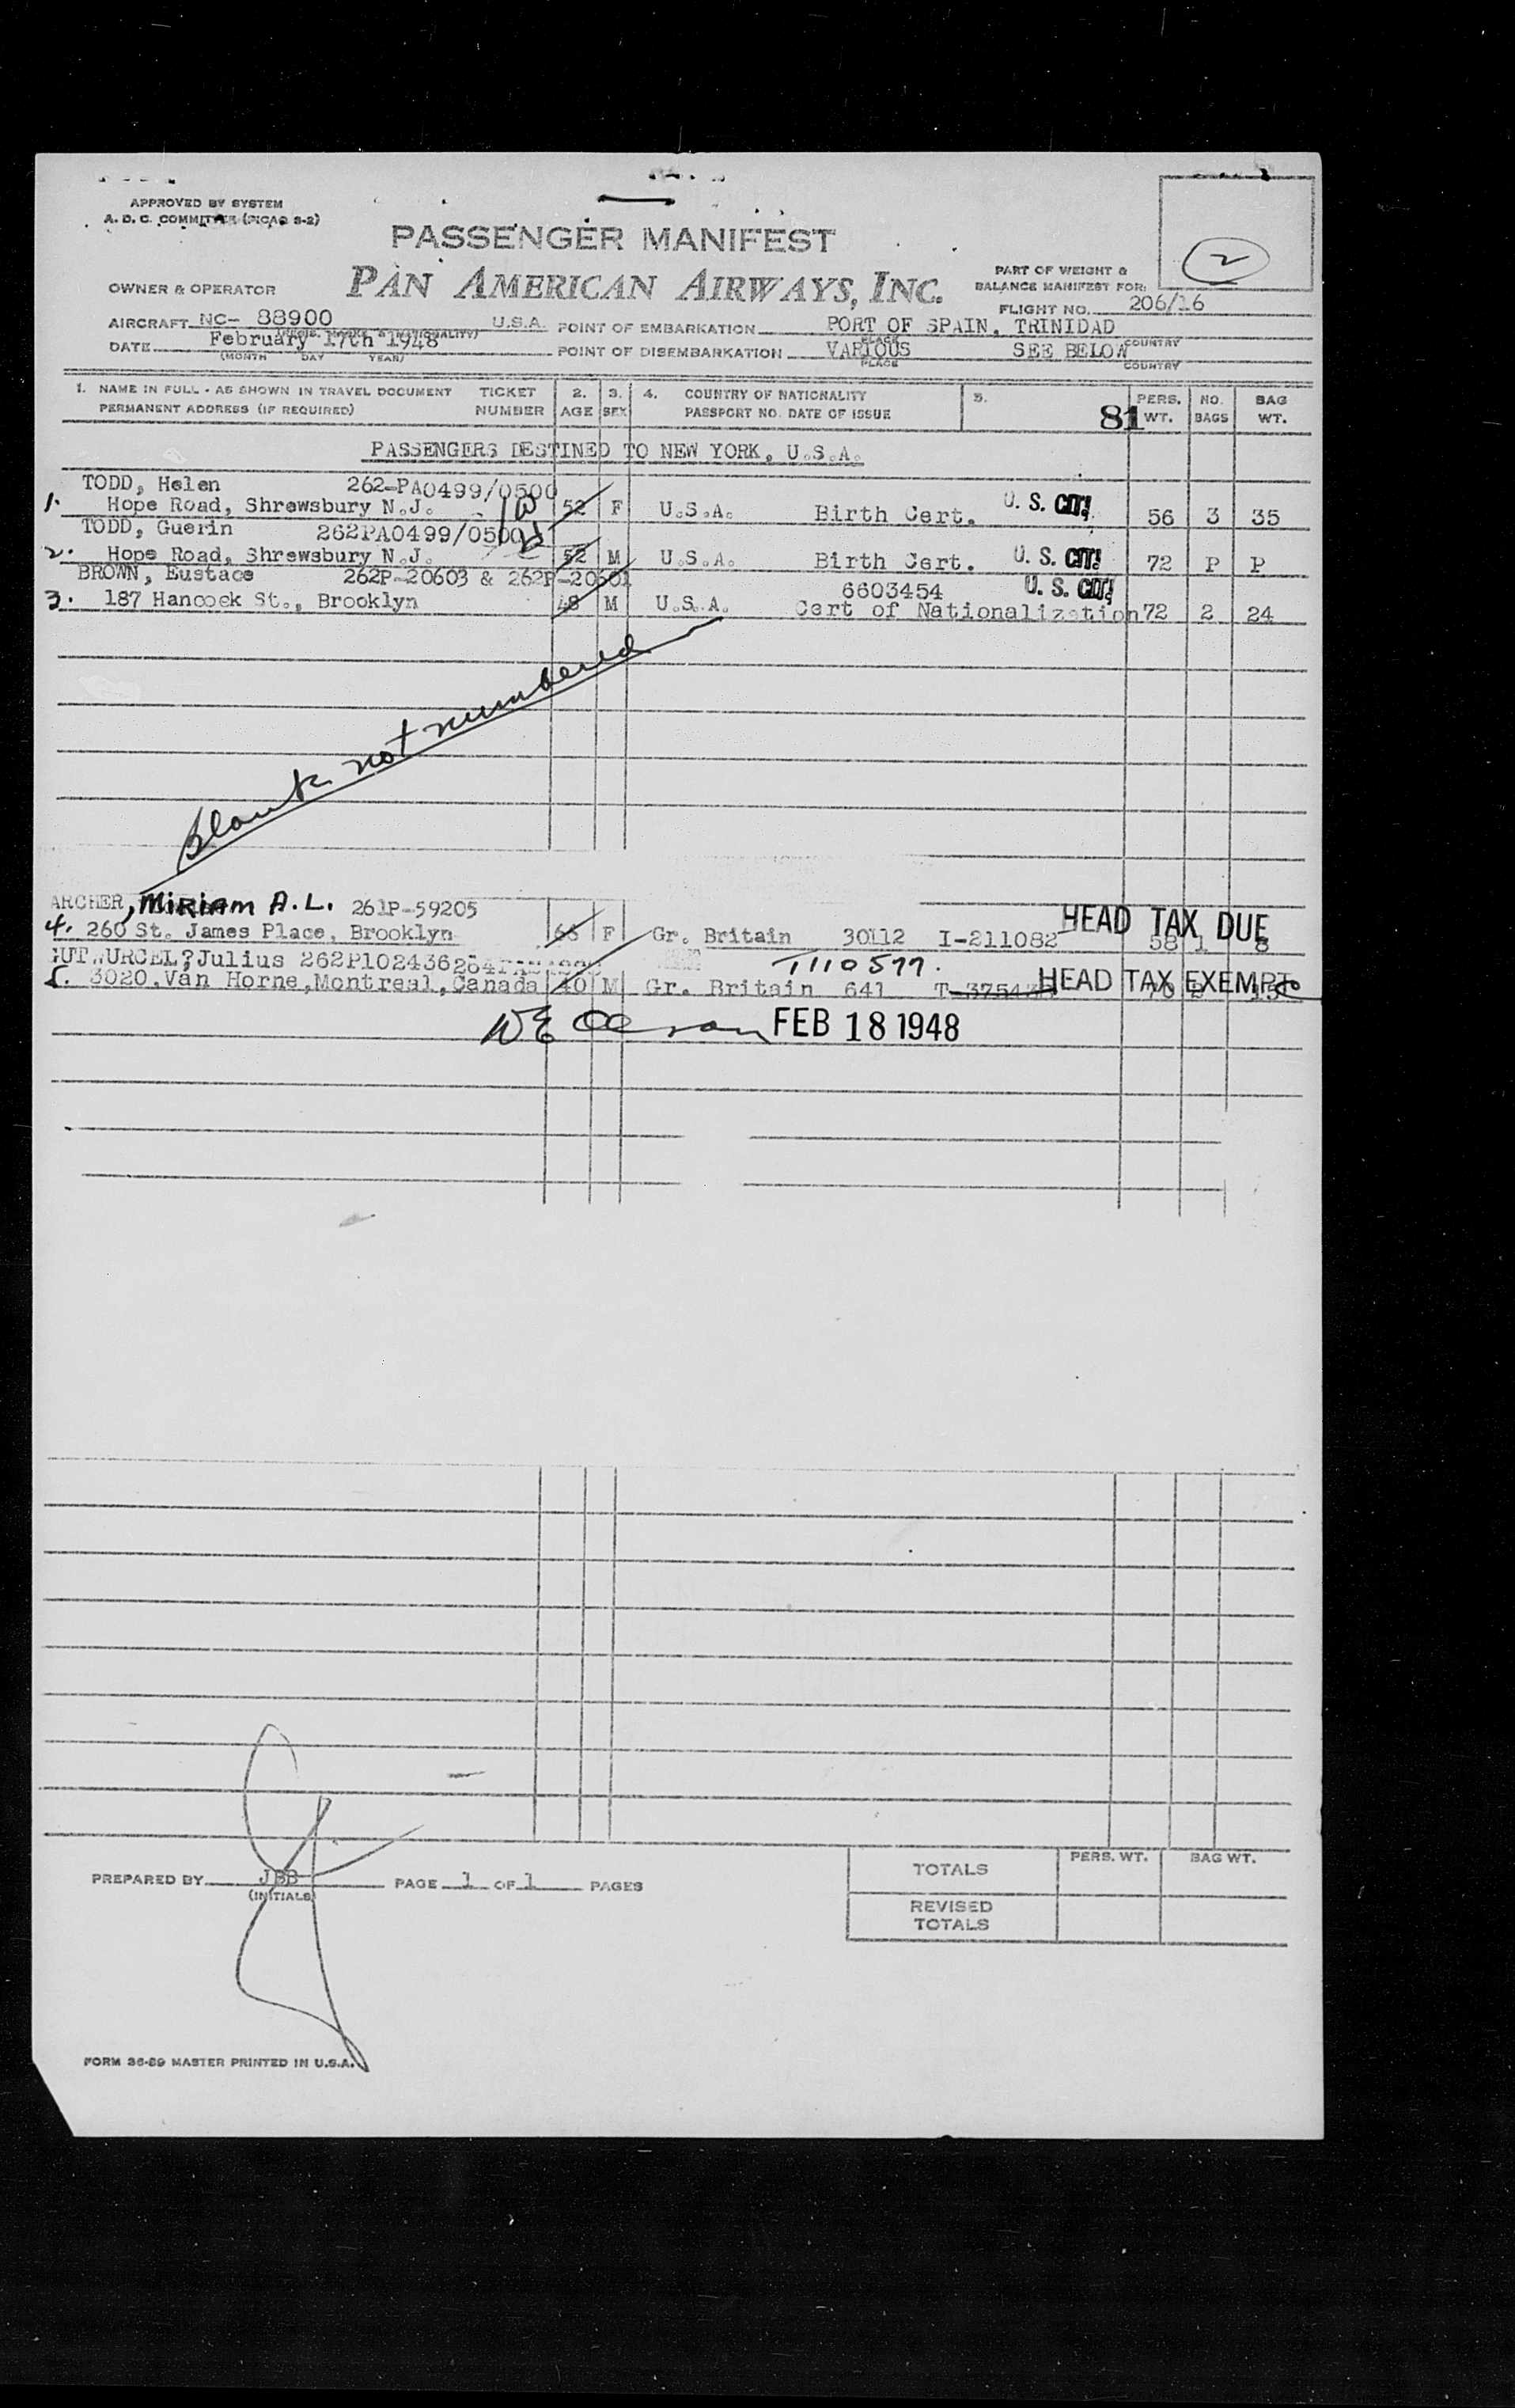 APPROVED BY SYSTEM
A. D. C. COMMITTEE (PICAO S-2)
PASSENGER MANIFEST
2
OWNER & OPERATOR PAN AMERICAN AIRWAYS, INC.
PART OF WEIGHT &
BALANCE MANIFEST FOR:
FLIGHT NO. 206/16
AIRCRAFT NC- 88900 U.S.A. POINT OF EMBARKATION PORT OF SPAIN, TRINIDAD
PLACE COUNTRY
DATE February 17th 1948 POINT OF DISEMBARKATION VARIOUS SEE BELOW
(MONTH DAY YEAR) PLACE COUNTRY
1. NAME IN FULL - AS SHOWN IN TRAVEL DOCUMENT TICKET 2. 3. 4. COUNTRY OF NATIONALITY 5. PERS. NO. BAG
PERMANENT ADDRESS (IF REQUIRED) NUMBER AGE SEX PASSPORT NO. DATE OF ISSUE 81 WT. BAGS WT.
PASSENGERS DESTINED TO NEW YORK, U.S.A.
TODD, Helen 262-PA0499/0500
1. Hope Road, Shrewsbury N.J. 52 F U.S.A. Birth Cert. U. S. CIT! 56 3 35
TODD, Guerin 262PA0499/0500
2. Hope Road, Shrewsbury N.J. 52 M U.S.A. Birth Cert. U. S. CIT! 72 P P
BROWN, Eustace 262P-20603 & 262P-20601 6603454 U. S. CIT!
3. 187 Hancock St., Brooklyn 48 M U.S.A. Cert of Nationalization 72 2 24
Blank not numbered
ARCHER, MiRiam A.L. 261P-59205
HEAD TAX DUE
4. 260 St. James Place, Brooklyn 66 F Gr. Britain 30112 I-211082 58 1 8
GUTWURCEL?Julius 262P102436 T110577.
5. 3020,Van Horne,Montreal,Canada 40 M Gr. Britain 641 HEAD TAX EXEMPT
FEB 18 1948
PREPARED BY JBB PAGE 1 OF 1 PAGES
(INITIALS)
PERS. WT. BAG WT.
TOTALS
REVISED
TOTALS
FORM 36-89 MASTER PRINTED IN U.S.A.